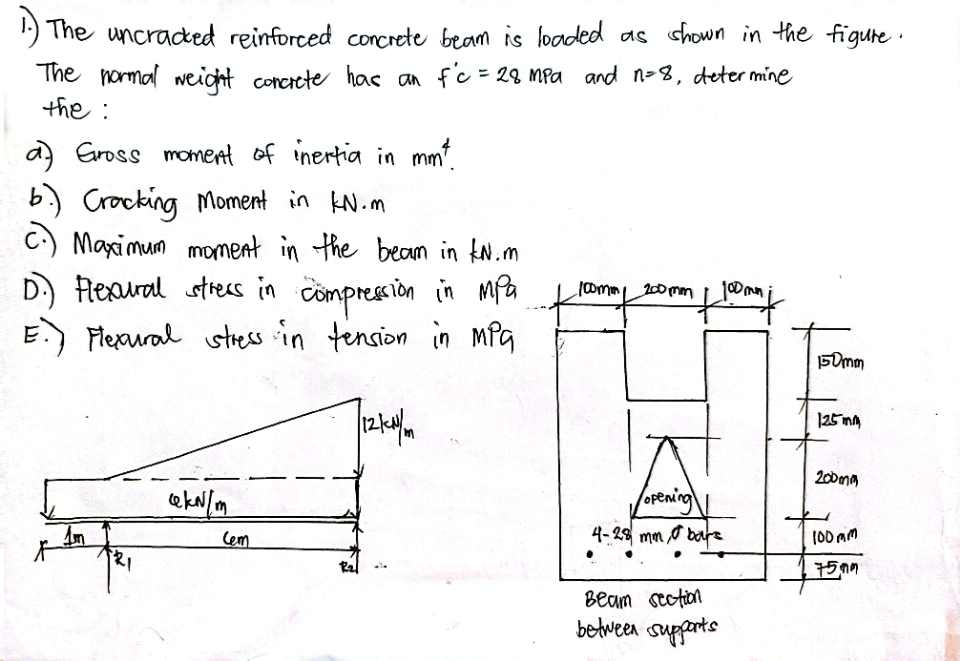 1.) The uncracked reinforced concrete beam is loaded as shown in the figure.
The normal weight concrete has an f'c = 28 MPa and n=8, determine
the :
a) Gross moment of inertia in mm⁴.
b.) Cracking Moment in kN.m
C.) Maximum moment in the beam in kN.m
D.) Flexural stress in compression in MPa
E.) Flexural stress in tension in MPa
100mm 200mm 100mm
150mm
125mm
200mm
100mm
75mm
opening
4-28 mm Ø bars
Beam section
between supports
12kN/m
6kN/m
1m
6m
R1
R2